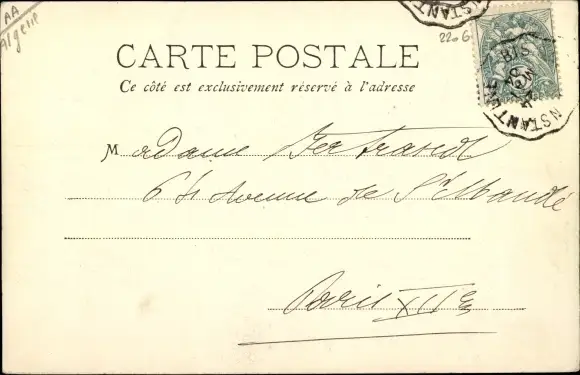 AA
Algérie
2206
CARTE POSTALE
Ce côté est exclusivement réservé à l'adresse
Madame Bertrand
64 Avenue de St Mandé
Paris XIIe